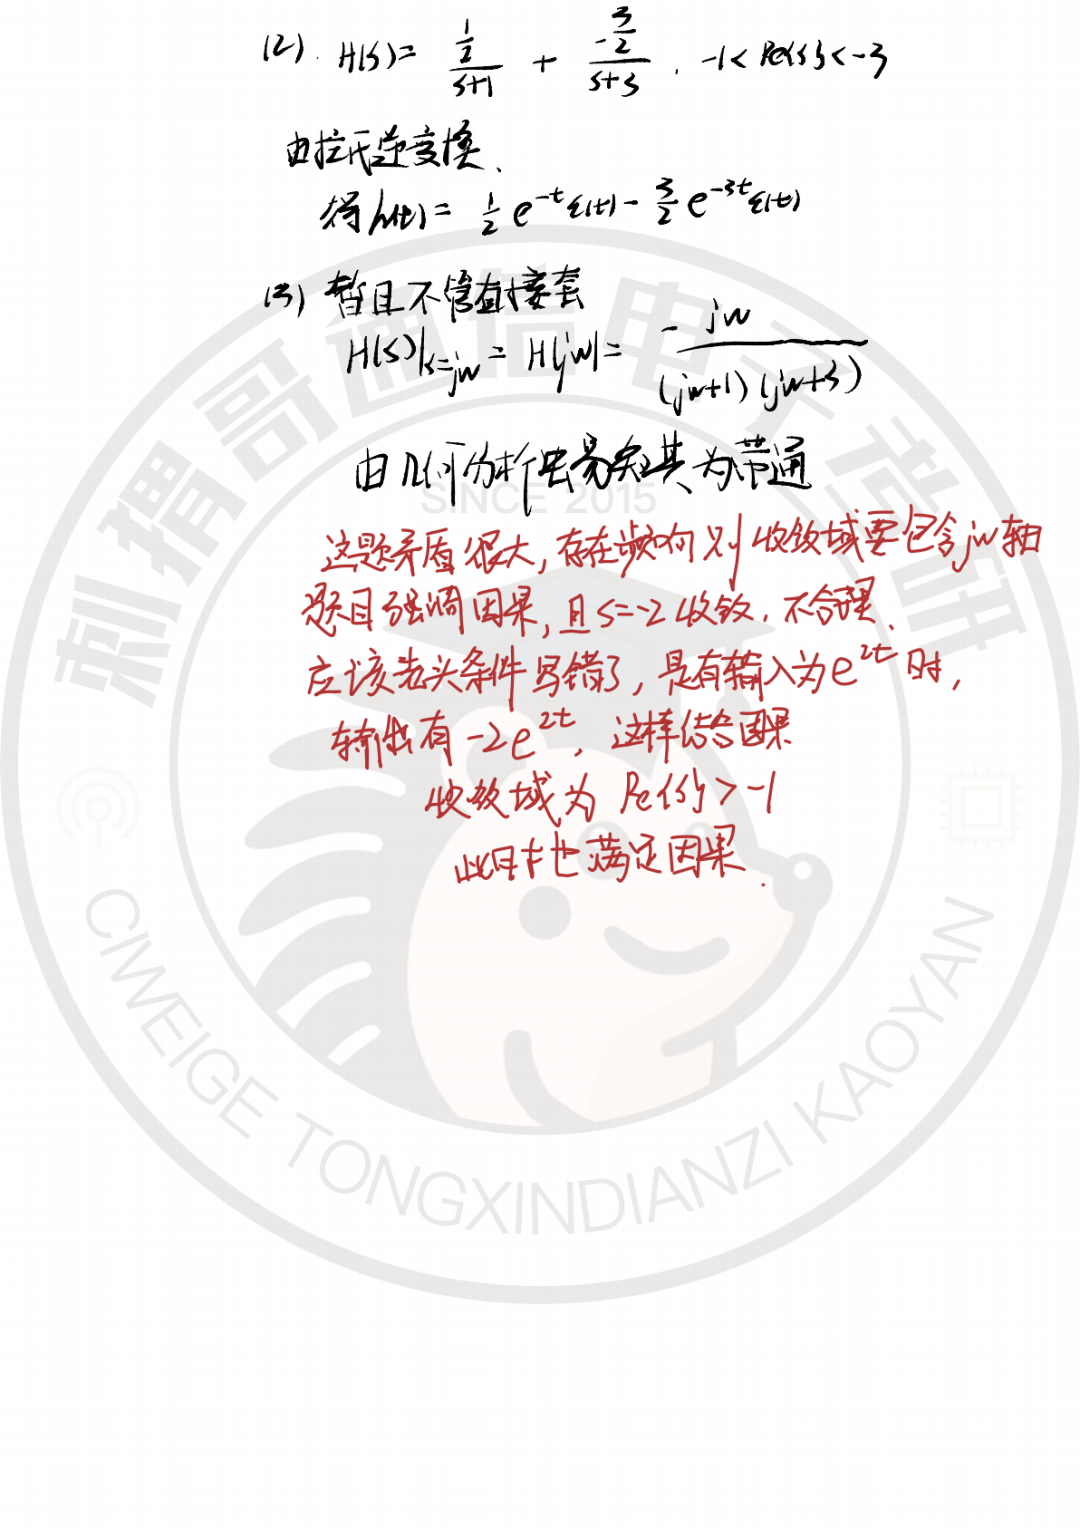 (2). H(s)= \frac{\frac{1}{2}}{s+1} + \frac{-\frac{3}{2}}{s+3} . -1<Re{s}<-3
由拉氏逆变换、
得h(t)= \frac{1}{2}e^{-t}ε(t)-\frac{3}{2}e^{-3t}ε(t)
(3) 暂且不管直接套
H(s)|_{s=jw} = H(jw)= \frac{-jw}{(jw+1)(jw+3)}
由几何分析法易知其为带通
这题矛盾很大,存在频响则收敛域要包含jw轴
题目强调因果,且s=-2收敛.不合理.
应该先头条件写错了,是有输入为e^{2t}时,
输出有-2e^{2t},这样结合因果
收敛域为 Re{s}>-1
此时也满足因果.
刺猬哥通信电子考研
SINCE 2015
CIWEIGE TONGXINDIANZI KAOYAN